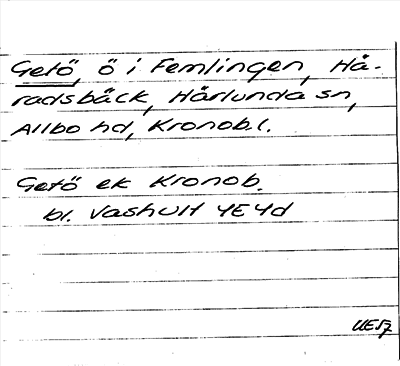 Getö, ö i Femlingen, Hå-
radsbäck, Härlunda sn,
Allbo hd, Kronob.l.
Getö ek Kronob.
bl. Vashult 4E4d